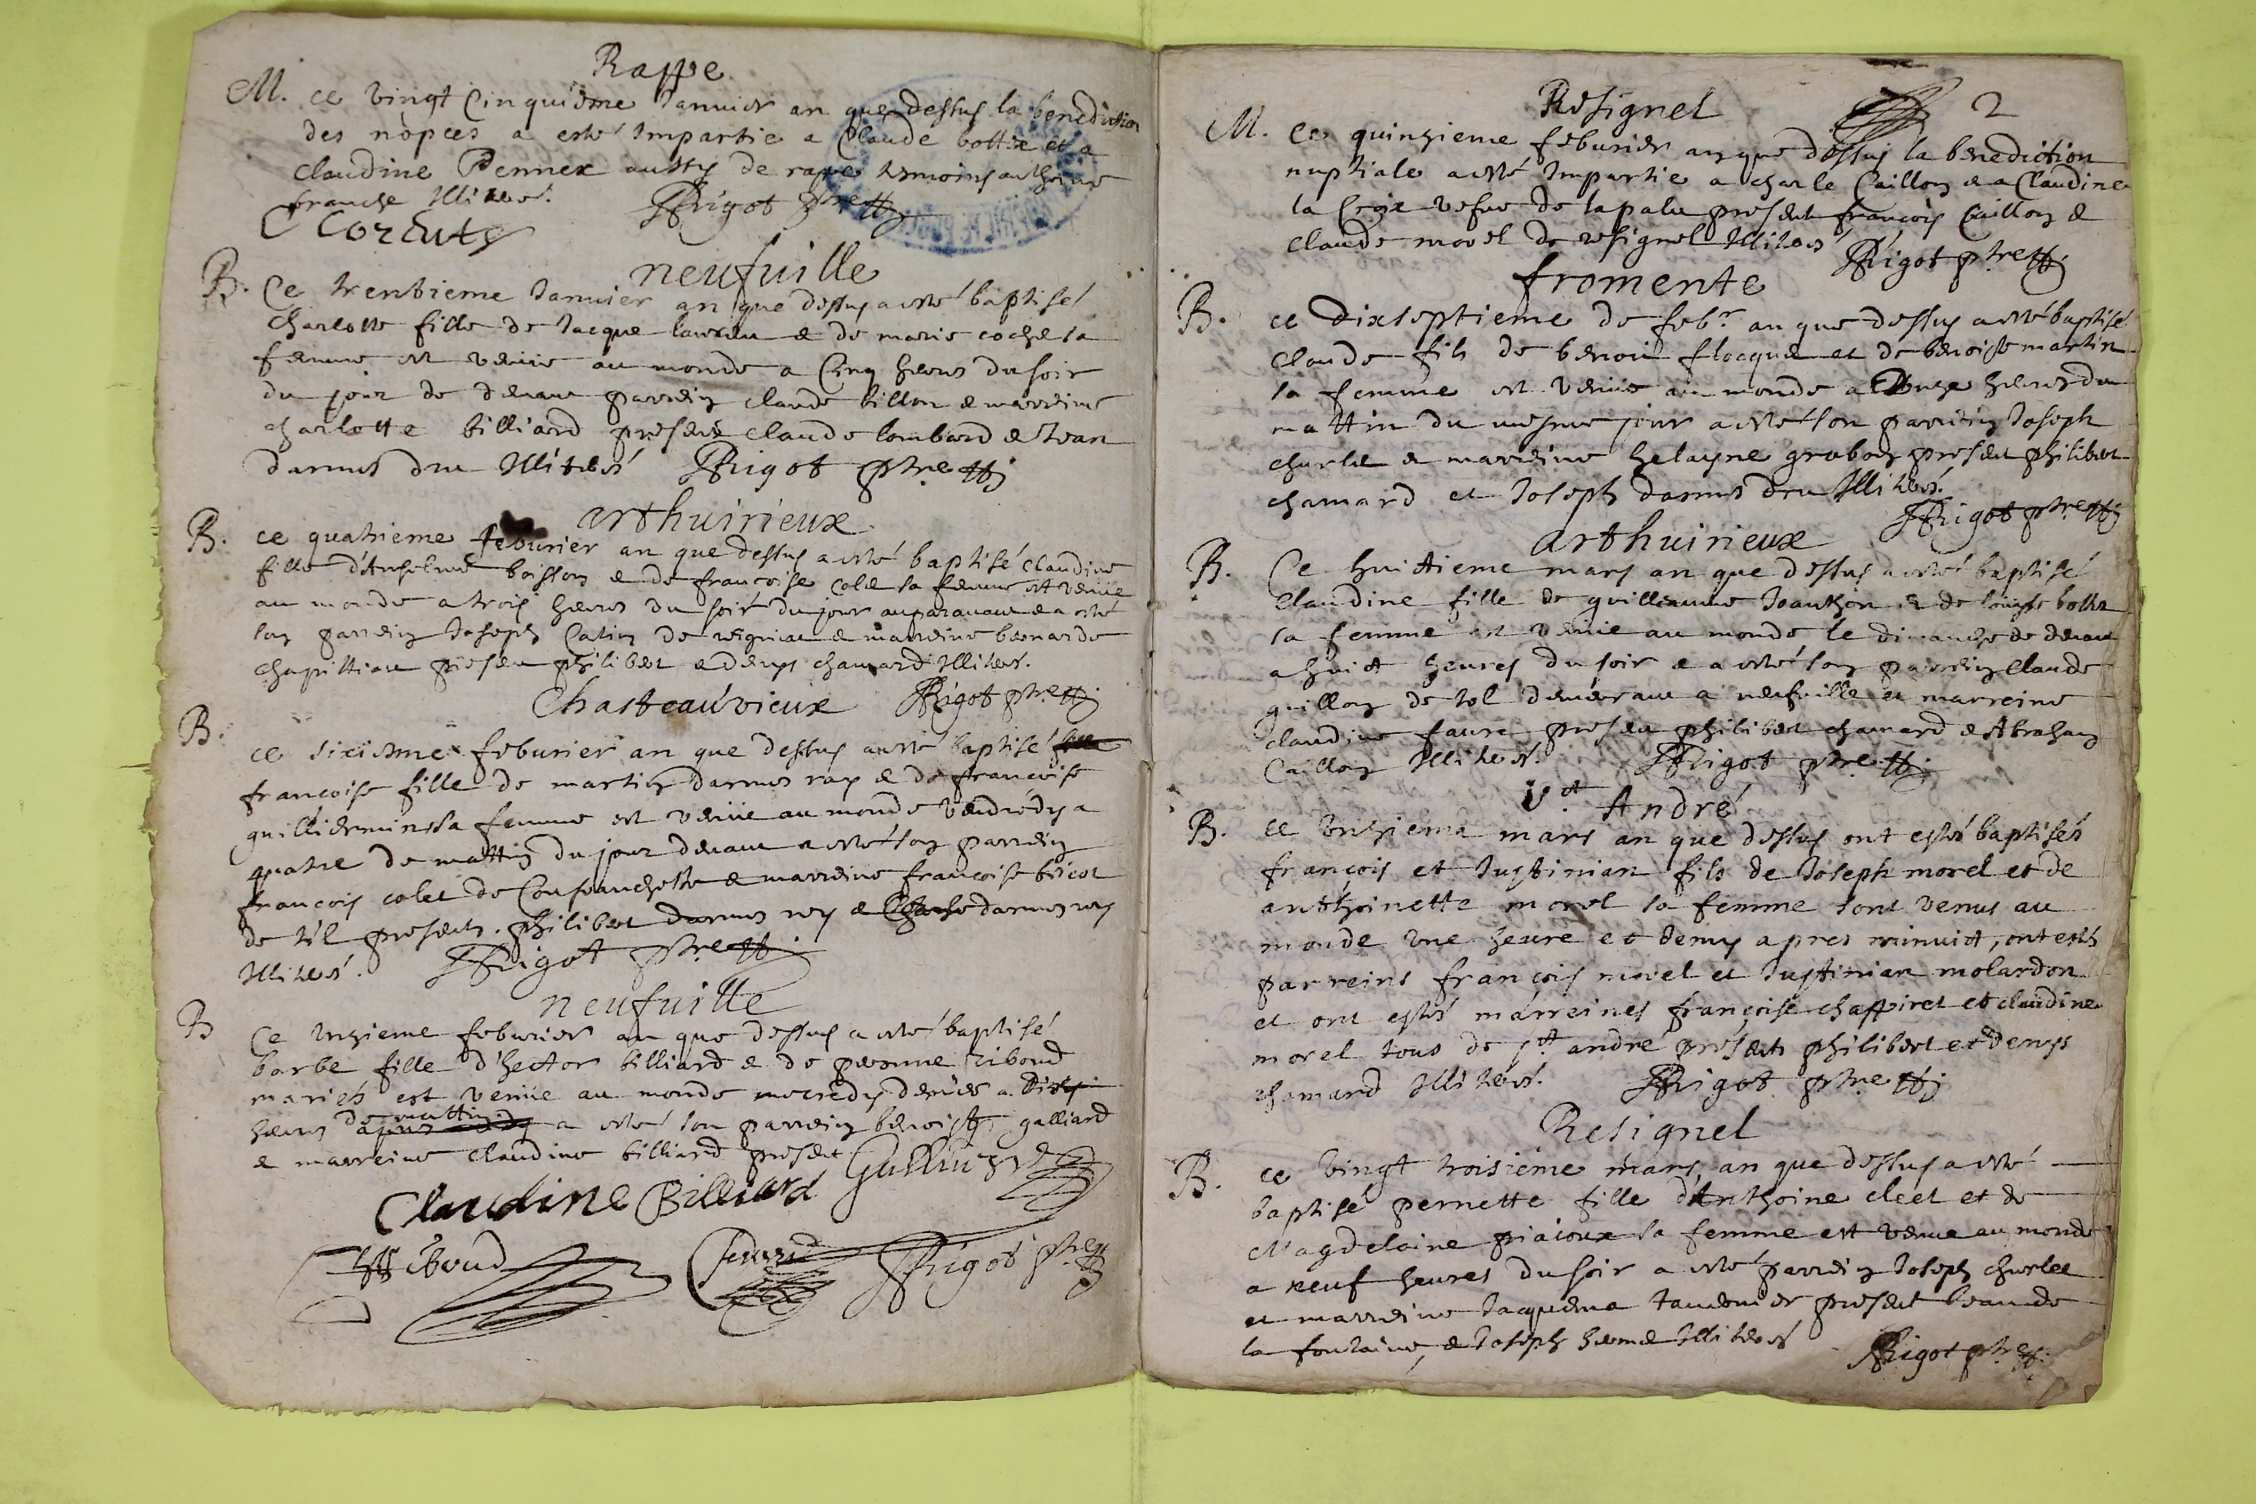 Rappe
M. ce vingt Cinquiéme Januier an que dessus la benediction
des nòpces a esté Impartie a Claude bottex et a
claudine Pennex aussy de rape temoins anthoine
franche Illiteré.
Corcuts
JRigot ptre
neufuille
B. Ce trentieme Januier an que dessus a esté baptisé
Charlotte fille de Jacque & de marie coche sa
femme est venüe au monde a Cinq heures du soir
du jour de deuant parrein claude billon & marreine
charlotte billiard presens claude lombard & Jean
darmes dru Illiterés JRigot ptre
arthuirieux
B. ce quatrieme feburier an que dessus a esté baptisé claudine
fille d'Anselme boisson & de francoise colet sa femme est venüe
au monde a trois heures du soir du jour auparauant & a esté
son parrein Joseph Catin de & marreine bernarde
presens philibert & denys chamard Illiterés.
JRigot ptre
Chasteauvieux
B. ce sixiéme feburier an que dessus a esté baptisé
francoise fille de martin darmes ray & de francoise
guilliermin sa femme est venüe au monde vendredy a
quatre de mattin du jour deuant a esté son parrein
françois colet de Confranchette & marreine francoise
de til presents. philibert darmes rey & darmes rey
Illiterés. JRigot ptre
neufuille
B Ce unzieme feburier an que dessus a esté baptisé
barbe fille d'hector billiard & de pernne riboud
mariés est venüe au monde mecredy dernier a dix
heures de mattin a esté son parrein benoist galliard
& marreine claudine billiard presens
Claudine Billiard Galliard
Riboud JRigot ptre
2
Resignel
M. Ce quinzieme feburier an que dessus la benediction
nuptiale a esté Impartie a charle Caillon & a Claudine
la Croix vefue de lapalu presents françois Caillon &
claude morel de resignel Illiterés JRigot ptre
fromente
B. ce dixseptieme de febr. an que dessus a esté baptisé
claude fils de benoit flocquet et de benoiste martin
sa femme est venüe au monde a Onze heures du
mattin du mesme jour a esté son parrein Joseph
churlet & marreine helayne grobon presens philibert
chamard et Joseph darmes dru Illiterés.
JRigot ptre
arthuirieux
B. Ce huictieme mars an que dessus a esté baptisé
Claudine fille de guilleaume Joanthon & de
sa femme est venüe au monde le dimanche de deuant
a huict heures du soir & a esté son parrein Claude
guillon de tol demeurant a neufuille et marreine
claudine faure presens philibert chamard & Abraham
Caillon Illiterés. JRigot ptre
St André
B. ce unzieme mars an que dessus ont estés baptisés
françois et Justinian fils de Joseph morel et de
anthoinette morel sa femme sont venus au
monde vne heure et demy apres minuict, ont estés
parreins françois morel et Justinian molardon
et ont estés marreines françoise chappiret et claudine
morel tous de st andré presents philibert et denys
chamard Illiterés. JRigot ptre
Resignel
B. ce vingt troisiéme mars, an que dessus a esté
baptisé pernette fille d'Anthoine cleel et de
Magdelaine sa femme est venue au monde
a neuf heures du soir a esté parrein Joseph churlet
et marreine Jaquema tauernier presens Jean de
la fontaine, & Joseph Illiterés JRigot ptre